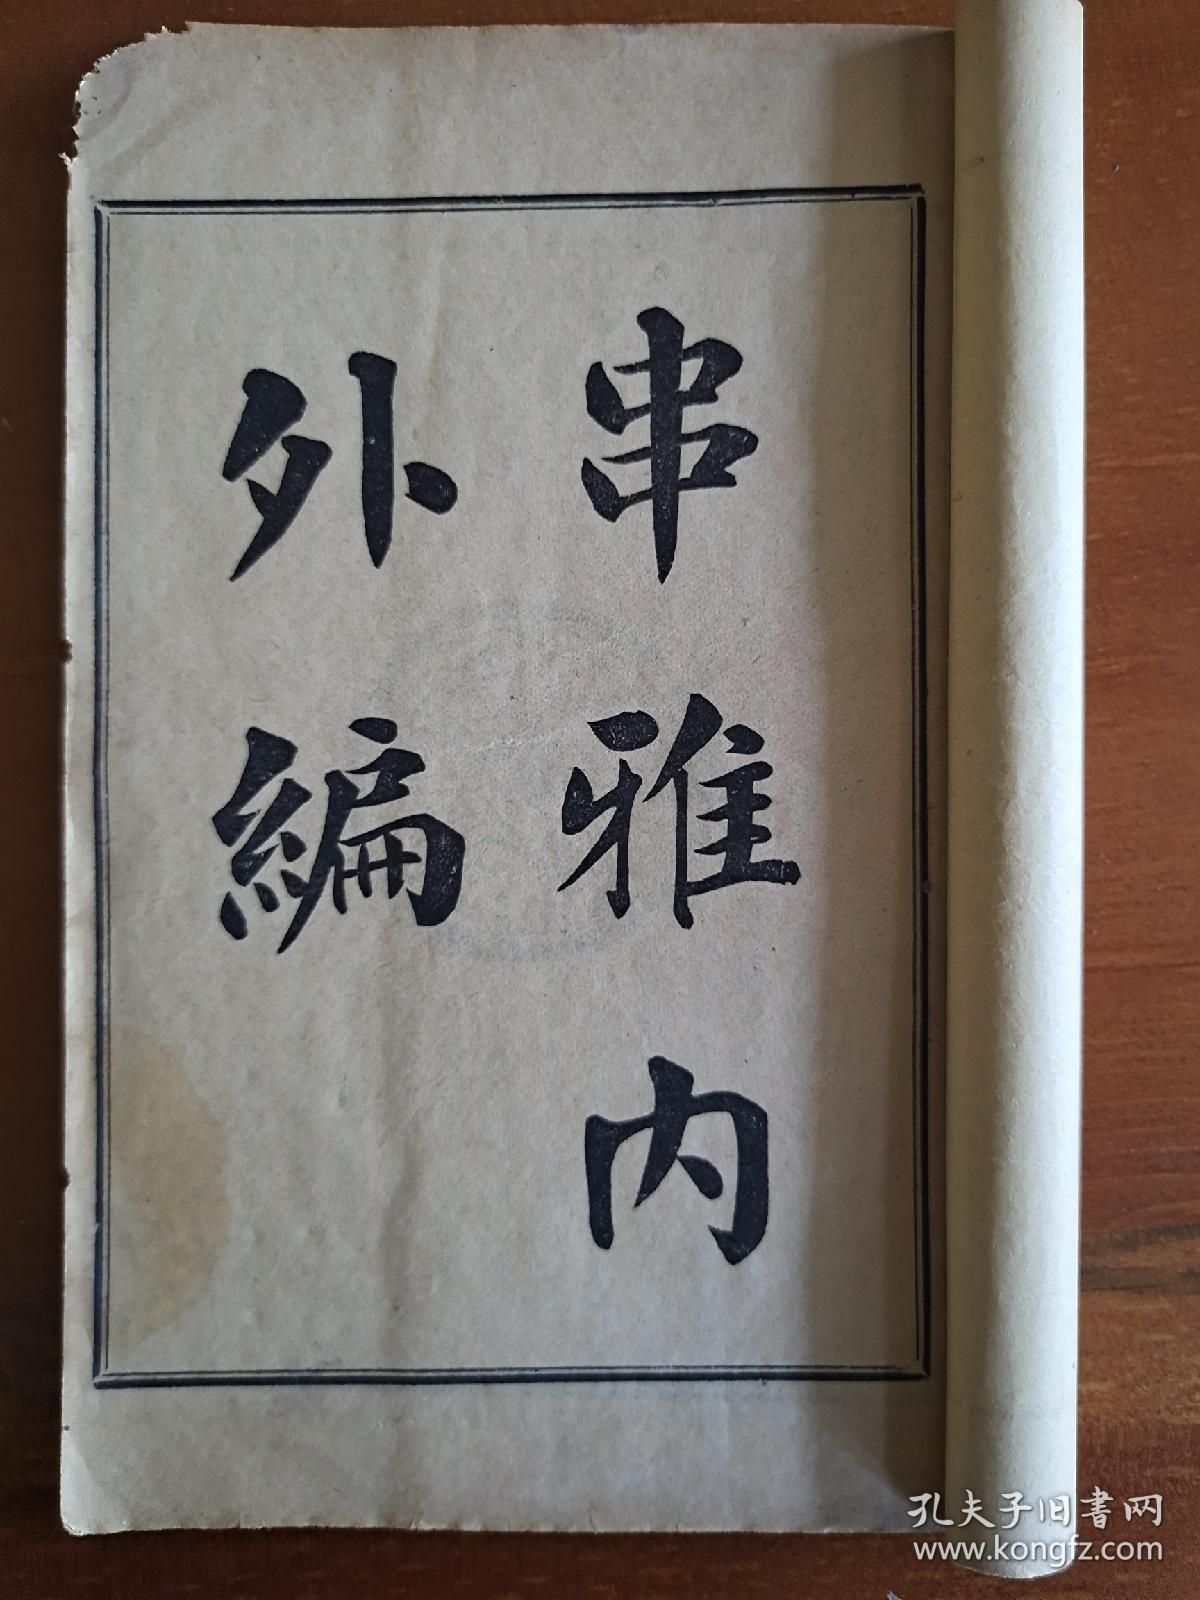 串雅内
外編
孔夫子旧書网
www.kongfz.com